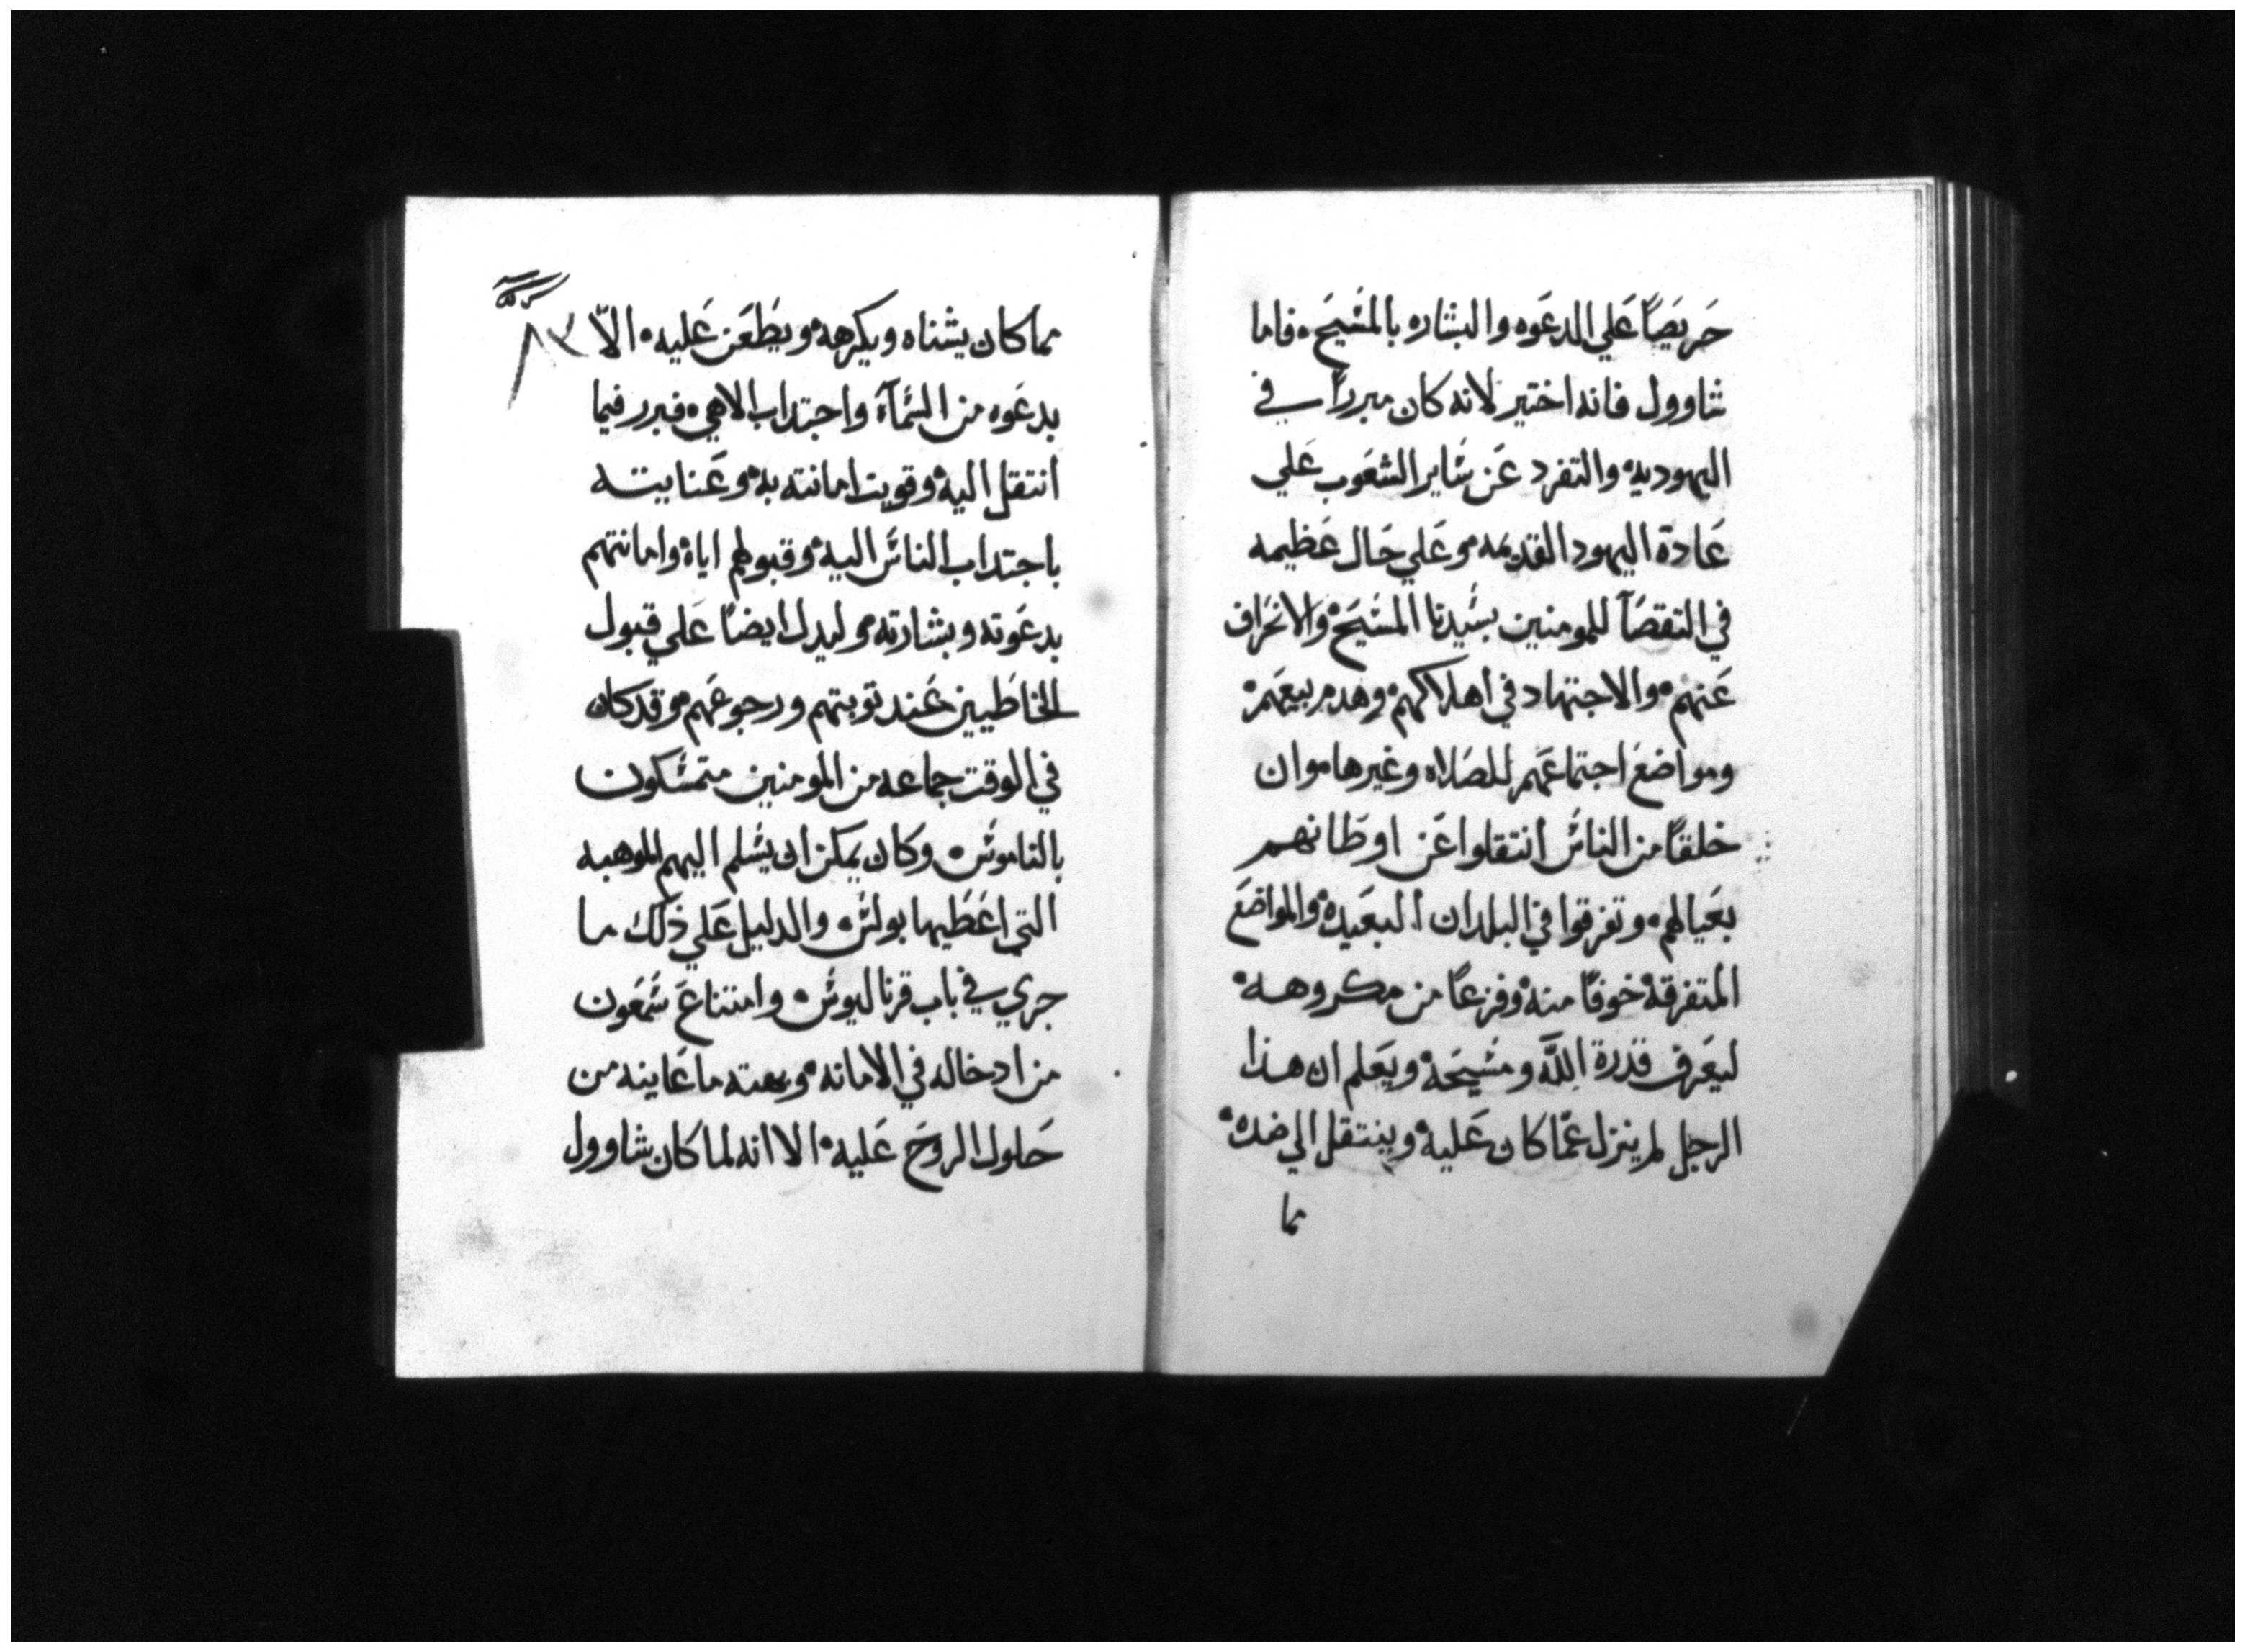 حريصًا علي الدعوه والبشاره بالمسيح. فاما
شاوول فانه اختير لانه كان مبررًا في
اليهوديه والتفرد عن ساير الشعوب علي
عادة اليهود القديمه. وعلي حال عظيمه
في التقصآ للمومنين بسيدنا المسيح والانحراف
عنهم. والاجتهاد في اهلاكهم وهدم بيعهم
ومواضع اجتماعهم للصلاه وغيرها. وان
خلقًا من الناس انتقلوا عن اوطانهم
بعيالهم. وتفرقوا في البلدان البعيدة والمواضع
المتفرقة خوفًا منه وفزعًا من مكروهه.
ليعرف قدرة الله ومسيحه ويعلم ان هذا
الرجل لم ينزل عمّا كان عليه وينتقل الي ضده.
مما
٨٣
مما كان يشناه ويكرهه ويطعن عليه. الّا
بدعوه من السمآء واجتداب الاهي. فبرر فيما
انتقل اليه وقويت امانته به وعنايته
باجتداب الناس اليه وقبولهم اياه وامانتهم
بدعوته وبشارته. وليدل ايضًا علي قبول
الخاطيين عند توبتهم ورجوعهم. وقد كان
في الوقت جماعه من المومنين متمسكون
بالناموس. وكان يمكن ان يسلم اليهم الموهبه
التي اعطيها بولس. والدليل علي ذلك ما
جري في باب قرناليوس. وامتناع سمعون
من ادخاله في الامانه. وبهته ما عاينه من
حلول الروح عليه. الا انه لما كان شاوول